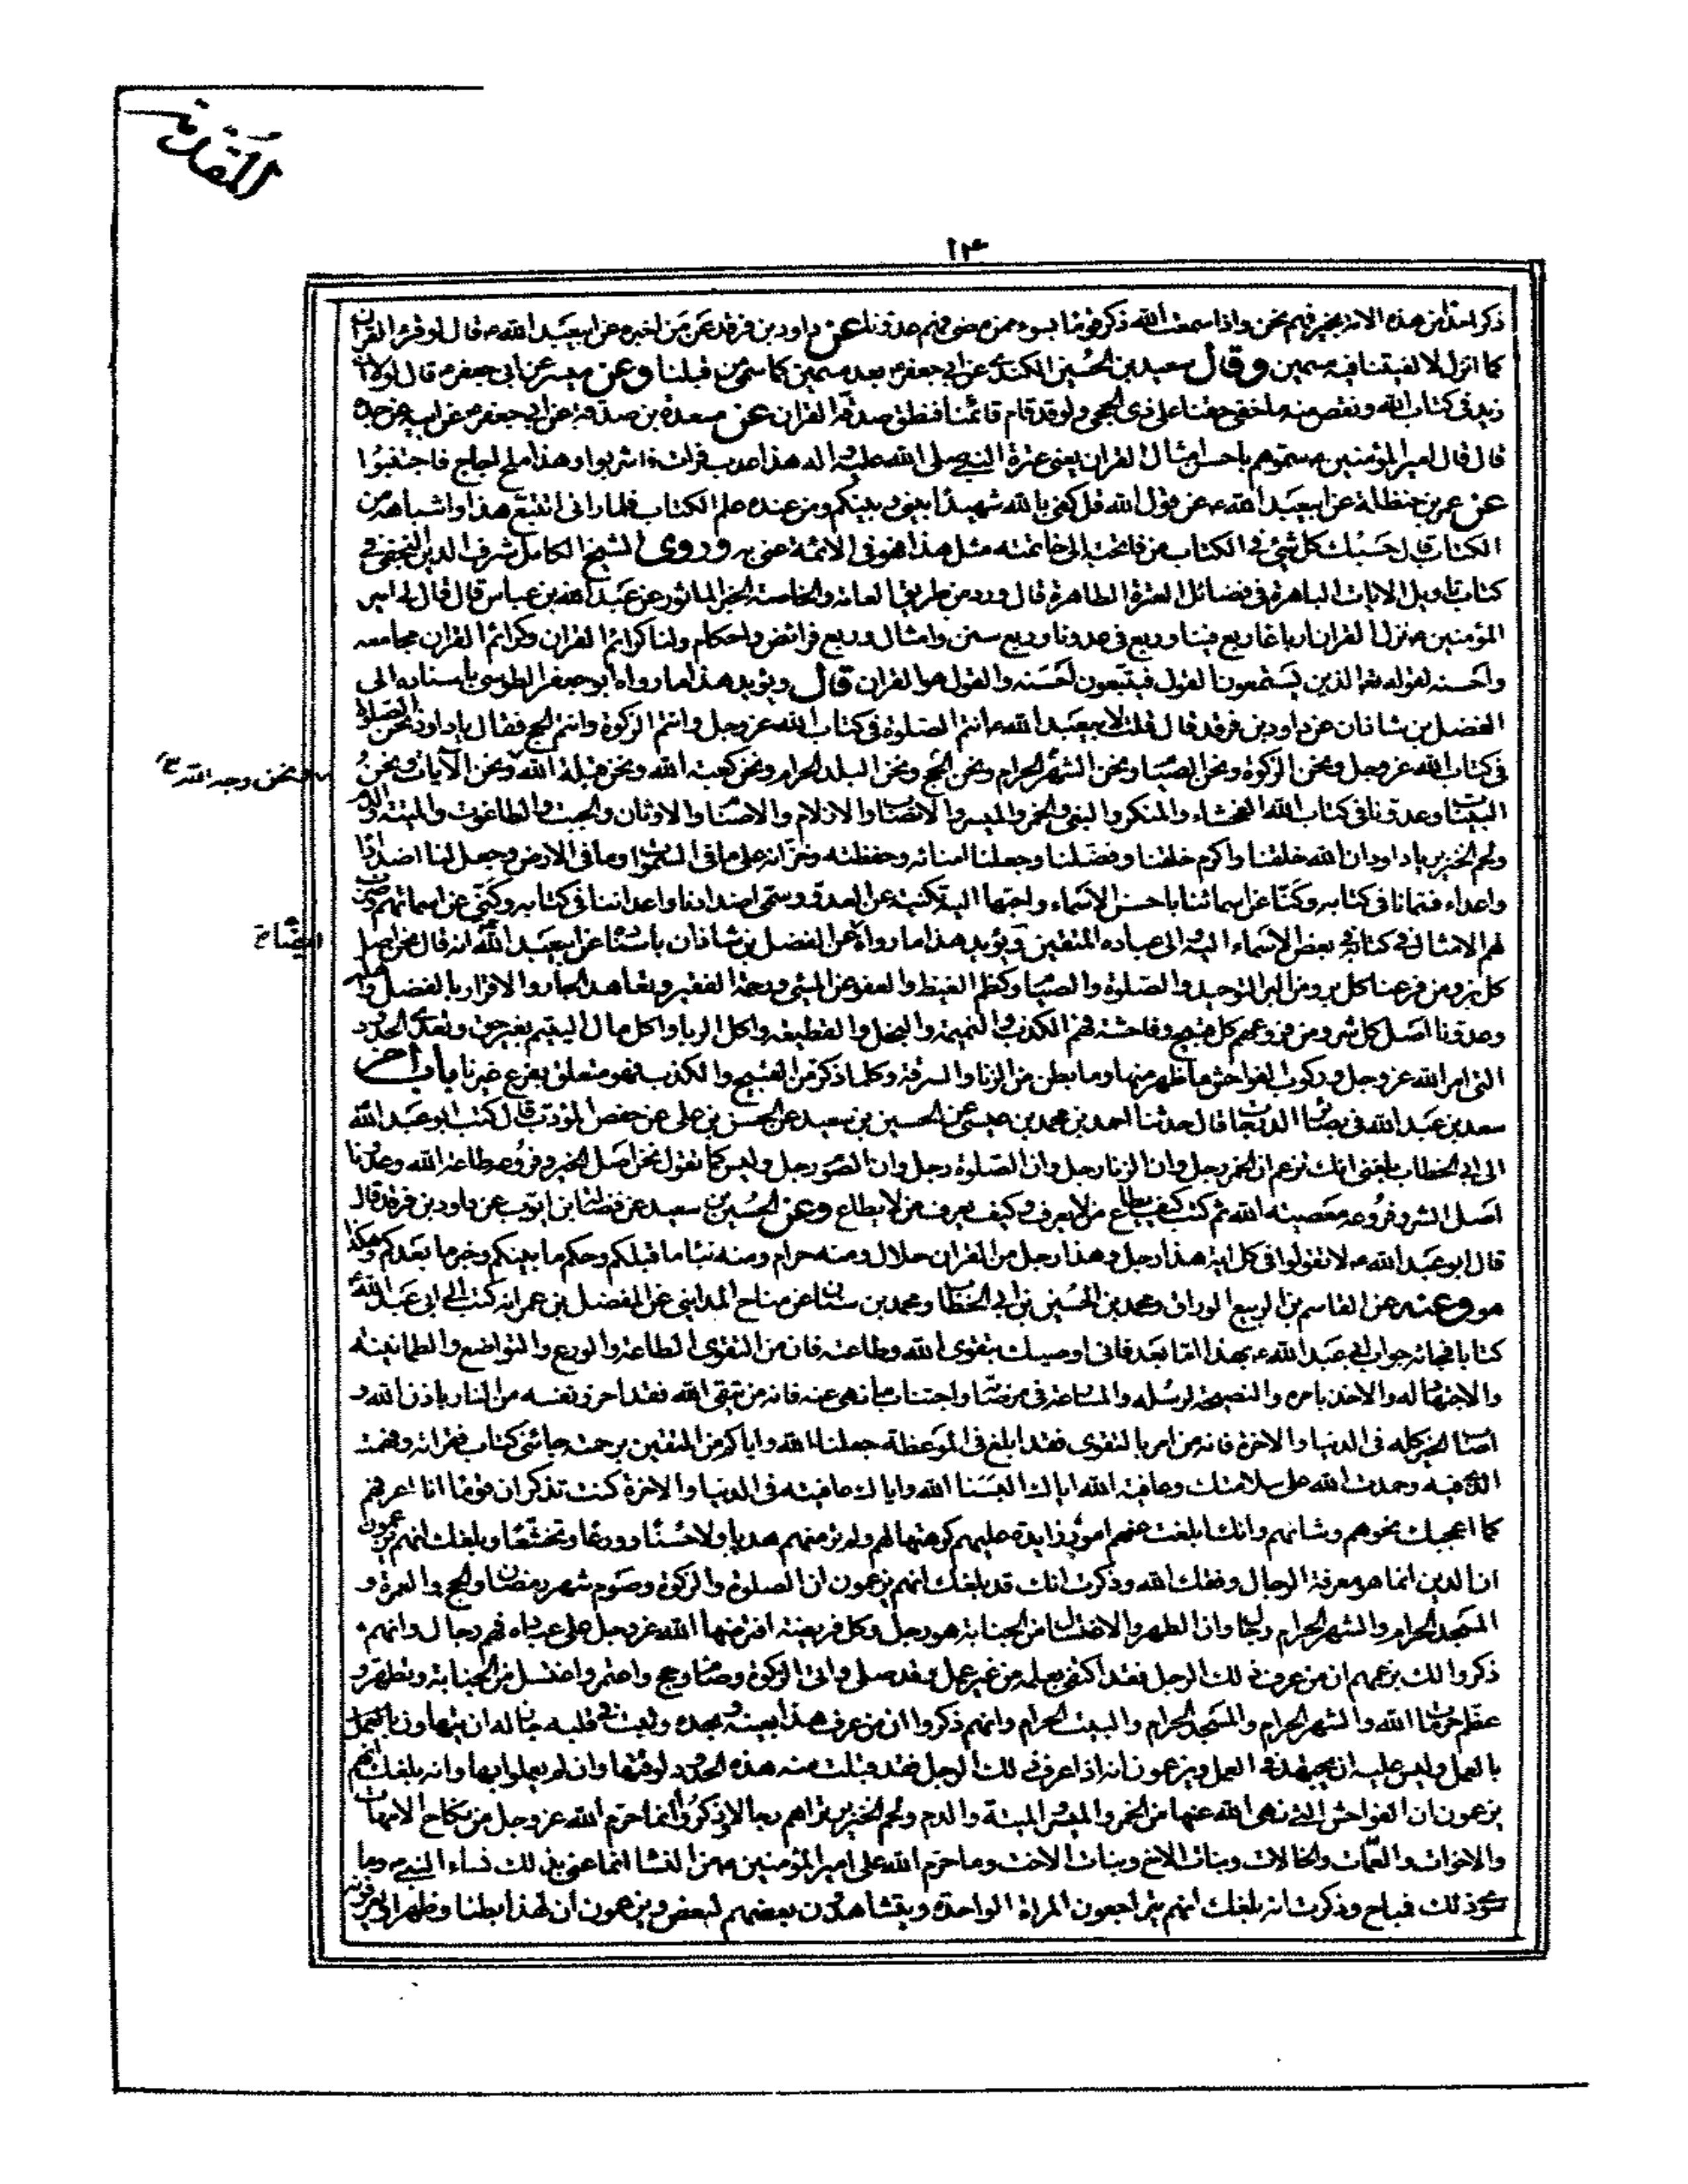 المقدمة
١٣
ذكر احدا من هذه الامة بخير فهم نحن واذا سمعت الله ذكر قوما بسوء ممن مضى فهم عدونا عن داود بن فرقد عمن اخبره عن ابيعبد الله ء قال لو قرء القران
كما انزل لالفيتنا فيه مسمين وقال سعيد بن الحسين الكندى عن ابي جعفر ء بعد مسمين كما سمى من قبلنا وعن ميسر عن ابى جعفر ء قال لولا انه
زيد فى كتاب الله ونقص منه ما خفى حقنا على ذى الحجى ولو قد قام قائمنا فنطق صدقه القران عن مسعدة بن صدقة عن ابى جعفر ء عن ابيه عن جده
قال قال امير المؤمنين ء سموهم باحسن امثال القران يعنى عترة النبى صلى الله عليه واله هذا عذب فرات فاشربوا وهذا ملح اجاج فاجتنبوا
عن عمر بن حنظلة عن ابيعبد الله ء عن قول الله قل كفى بالله شهيدا بينى وبينكم ومن عنده علم الكتاب فلما رانى اتتبع هذا واشباهه من
الكتاب قال حسبك كل شئ فى الكتاب من فاتحته الى خاتمته مثل هذا فهو فى الائمة عنى به وروى الشيخ الكامل شرف الدين النجفى فى
كتاب تاويل الايات الباهرة فى فضائل العترة الطاهرة قال ورد من طريق العامة والخاصة الخبر الماثور عن عبد الله بن عباس قال قال لى امير
المؤمنين ء نزل القران ارباعا ربع فينا وربع فى عدونا وربع سنن وامثال وربع فرائض واحكام ولنا كرائم القران وكرائم القران مجامعه
واحسنه لقوله تع الذين يستمعون القول فيتبعون احسنه والقول هو القران قال ويؤيد هذا ما رواه ابو جعفر الطوسى باسناده الى
الفضل بن شاذان عن داود بن فرقد قال قلت لابيعبد الله ء انتم الصلوة فى كتاب الله عز وجل وانتم الزكوة وانتم الحج فقال يا داود نحن الصلوة
فى كتاب الله عز وجل ونحن الزكوة ونحن الصيام ونحن الشهر الحرام ونحن الحج ونحن البلد الحرام ونحن كعبة الله ونحن قبلة الله ونحن الآيات ونحن
ونحن وجه الله
البينات وعدونا فى كتاب الله الفحشاء والمنكر والبغى والخمر والميسر والانصاب والازلام والاصنام والاوثان والجبت والطاغوت والميتة والدم
ولحم الخنزير يا داود ان الله خلقنا واكرم خلقنا وفضلنا وجعلنا امنائه وحفظته وخزانه على ما فى السموات وما فى الارض وجعل لنا اضدادا
واعداء فسمانا فى كتابه وكنى عن اسمائنا باحسن الاسماء واحبها اليه تكنية عن العدو وسمى اضدادنا واعدائنا فى كتابه وكنى عن اسمائهم وضرب
لهم الامثال فى كتابه فى بعض الاسماء اليه والى عباده المتقين ويؤيد هذا ما رواه عن الفضل بن شاذان باسناده عن ابيعبد الله انه قال نحن اصل
ايضا
كل بر ومن فرعنا كل بر ومن البر التوحيد والصلوة والصيام وكظم الغيظ والعفو عن المسئ ورحمة الفقير وتعاهد الجار والاقرار بالفضل لاهله
وعدونا اصل كل شر ومن فروعهم كل قبيح وفاحشة فهم الكذب والنميمة والبخل والقطيعة واكل الربا واكل مال اليتيم بغير حق وتعدى الحدود
التى امر الله عز وجل وركوب الفواحش ما ظهر منها وما بطن من الزنا والسرقة وكلما ذكر من القبيح والكذب فهو متعلق بفرع غيرنا باب اخر
سعد بن عبد الله فى بصائر الدرجات قال حدثنا احمد بن محمد بن عيسى عن الحسين بن سعيد عن الحسن بن على عن حفص المؤدب قال كتب ابو عبد الله
الى ابى الخطاب بلغنى انك تزعم ان الخمر رجل وان الزنا رجل وان الصلوة رجل وان الصوم رجل وليس كما تقول نحن اصل الخير وفروعه طاعة الله وعدونا
اصل الشر وفروعه معصية الله ثم كتب كيف يطاع من لا يعرف وكيف يعرف من لا يطاع وعن الحسين بن سعيد عن فضالة بن ايوب عن داود بن فرقد قال
قال ابو عبد الله ء لا تقولوا فى كل اية هذا رجل وهذا رجل من القران حلال ومنه حرام ومنه نبا ما قبلكم وحكم ما بينكم وخبر ما بعدكم وهكذا
هو وعنه عن القاسم بن الربيع الوراق ومحمد بن الحسين بن ابى الخطاب ومحمد بن سنان عن مياح المداينى عن المفضل بن عمر انه كتب الى ابى عبد الله
كتابا فجائه جواب ابى عبد الله ء بهذا اما بعد فانى اوصيك بتقوى الله وطاعته فان من التقوى الطاعة والورع والتواضع والطمانينة
والاجتهاد له والاخذ بامره والنصيحة لرسله والمسارعة فى مرضاته واجتناب ما نهى عنه فانه من يتقى الله فقد احرز نفسه من النار باذن الله و
اصاب الخير كله فى الدنيا والاخرة فانه من امر بالتقوى فقد ابلغ فى الموعظة جعلنا الله واياكم من المتقين برحمته جائنى كتابك فقراته وفهمت
الذى فيه وحمدت الله على سلامتك وعافية الله اياك البسنا الله واياك عافيته فى الدنيا والاخرة كنت تذكر ان قوما انا اعرفهم
كما اعجبك نحوهم وشانهم وانك ابلغت عنهم امور زايدة عليهم كرهتها لهم ولم تر منهم هديا ولا حسنا وورعا وتخشعا وبلغك انهم يزعمون
ان الدين انما هو معرفة الرجال وفقك الله وذكرت انك قد بلغك انهم يزعمون ان الصلوة والزكوة وصوم شهر رمضان والحج والعمرة و
المسجد الحرام والشهر الحرام رجال وان الطهر والاغتسال من الجنابة هو رجل وكل فريضة افترضها الله عز وجل على عباده فهم رجال وانهم
ذكروا لك بزعمهم ان من عرف ذلك الرجل فقد اكتفى بعلمه من غير عمل وقد صلى واتى الزكوة وصام وحج واعتمر واغتسل من الجنابة وتطهر و
عظم حرمات الله والشهر الحرام والمسجد الحرام والبيت الحرام وانهم ذكروا ان من عرف هذا بعينه وبحده وثبت فى قلبه جاز له ان يتهاون بالعمل
بالعمل وليس عليه ان يجتهد فى العمل ويزعمون انه اذا عرف ذلك الرجل فقد قبلت منه هذه الحدود لوقتها وان لم يعملوا بها وانه بلغك انهم
يزعمون ان الفواحش التى نهى الله عنها من الخمر والميسر الميتة والدم ولحم الخنزير هم رجال وذكروا انما حرم الله عز وجل من نكاح الامهات
والاخوات والعمات والخالات وبنات الاخ وبنات الاخت وما حرم الله على امير المؤمنين ء من النساء انما عنى بذلك نساء النبى ء وما
سوى ذلك فمباح وذكرت انه بلغك انهم يتراجعون المراة الواحدة ويتشاهدون بعضهم لبعض ويزعمون ان لهذا بطنا وظهرا يعرفونه